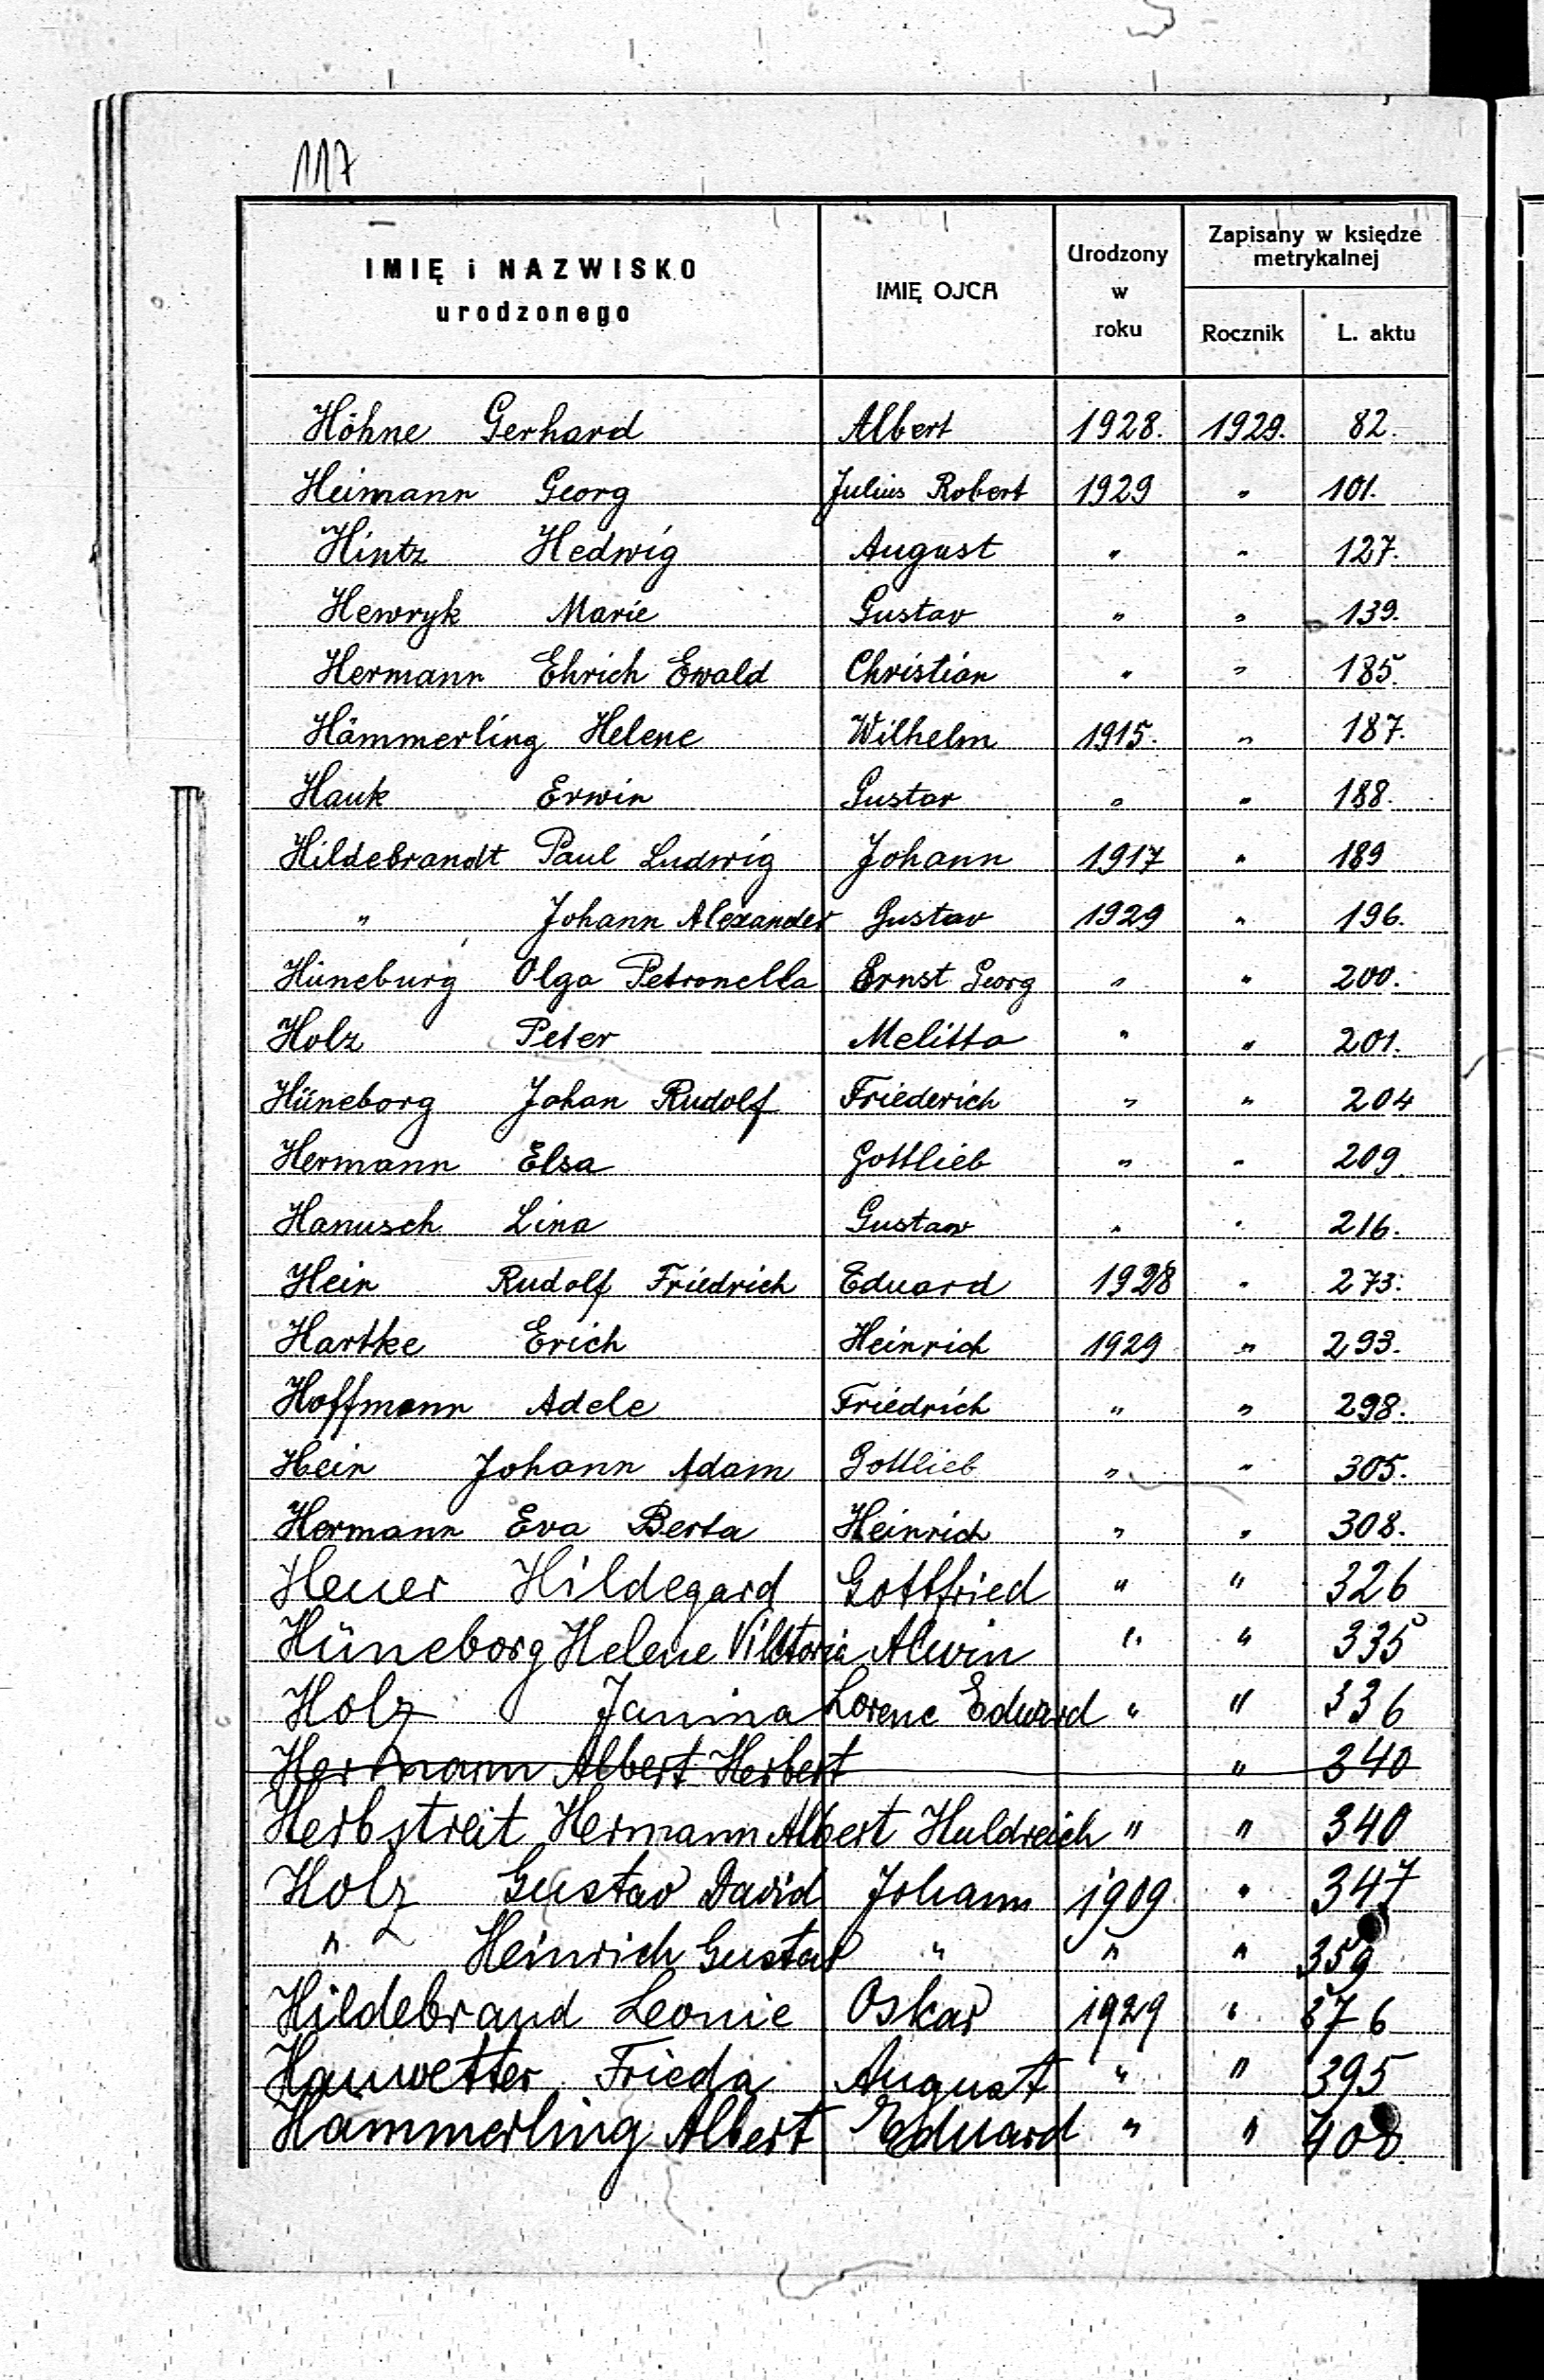 117
IMIĘ i NAZWISKO urodzonego IMIĘ OJCA Urodzony w roku Zapisany w księdze metrykalnej
Rocznik L. aktu
Höhne Gerhard Albert 1928. 1929. 82.
Heimann Georg Julius Robert 1929 " 101.
Hintz Hedwig August " " 127.
Hewryk Marie Gustav " " 139.
Hermann Ehrich Ewald Christian " " 185.
Hämmerling Helene Wilhelm 1915. " 187.
Hauk Erwin Gustav " " 188.
Hildebrandt Paul Ludwig Johann 1917 " 189
" Johann Alexander Gustav 1929 " 196.
Hüneburg Olga Petronella Ernst Georg " " 200.
Holz Peter Melitta " " 201.
Hüneborg Johan Rudolf Friederich " " 204
Hermann Elsa Gottlieb " " 209
Hanusch Lina Gustaw " " 216.
Hein Rudolf Friedrich Eduard 1928 " 273.
Hartke Erich Heinrich 1929 " 293.
Hoffmann Adele Friedrich " " 298.
Hein Johann Adam Gottlieb " " 305.
Hermann Eva Berta Heinrich " " 308.
Heuer Hildegard Gottfried " " 326
Hüneborg Helene Viktoria Alwin " " 335
Holz Janina Lorenc Edward " " 336
Hermann Albert Herbert " 340
Herbstreit Hermann Albert Huldreich " " 340
Holz Gustav David Johann 1909 " 347
" Heinrich Gustav " " " 359
Hildebrand Leonie Oskar 1929 " 376
Hauwetter Frieda August " " 395
Hämmerling Albert Eduard " " 408.